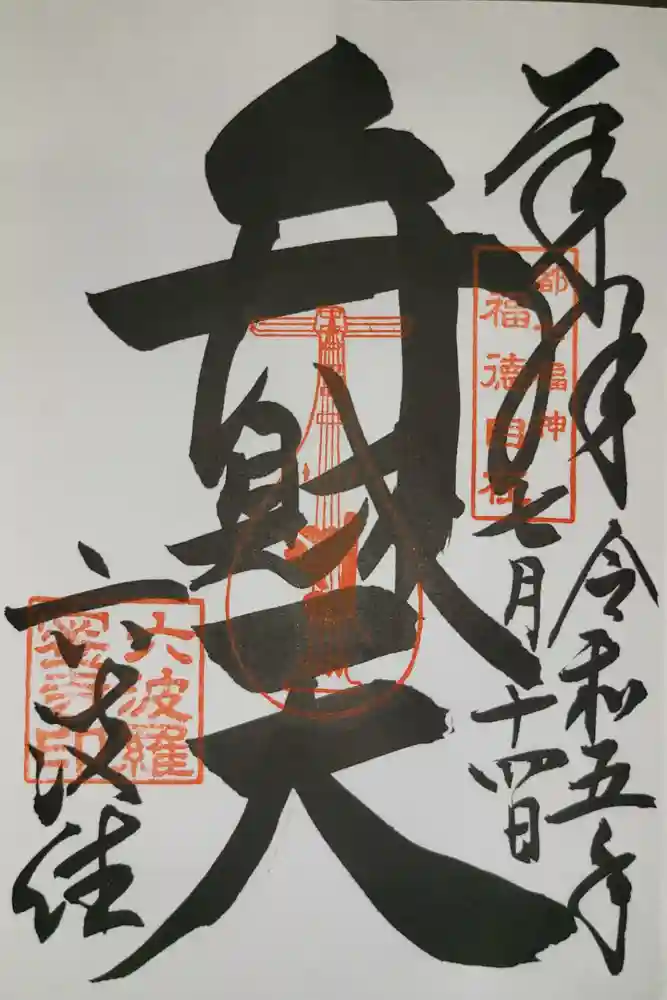 奉拝
令和五年
七月十四日
都七福神
福徳自在
弁財天
六波
六波羅
蜜寺印